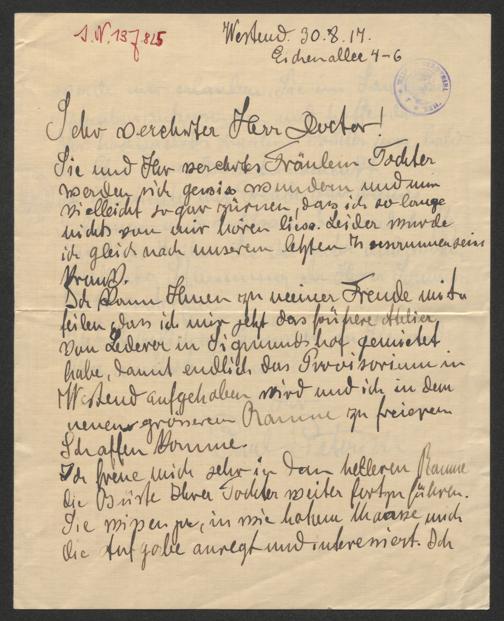 J.N. 137815
Westend. 30.8.17.
Eichenallee 4-6
Sehr verehrter Herr Doctor!
Sie und Ihr verehrtes Fräulein Tochter
werden sich gewiss wundern und nun
vielleicht sogar zürnen, dass ich so lange
nichts von mir hören liess. Leider wurde
ich gleich nach unserem letzten Zusammensein
krank.
Ich kann Ihnen zu meiner Freude mit
teilen, dass ich mir jetzt das frühere Atelier
von Lederer in Sigmundshof gemietet
habe, damit endlich das Provisorium in
Westend aufgehoben wird und ich in dem
neuen grösseren Raume zu freierem
Schaffen komme.
Ich freue mich sehr in dem helleren Raume
die Büste Ihrer Tochter weiter fortzuführen.
Sie wissen ja, in wie hohem Maasse mich
die Aufgabe anregt und interessiert. Ich